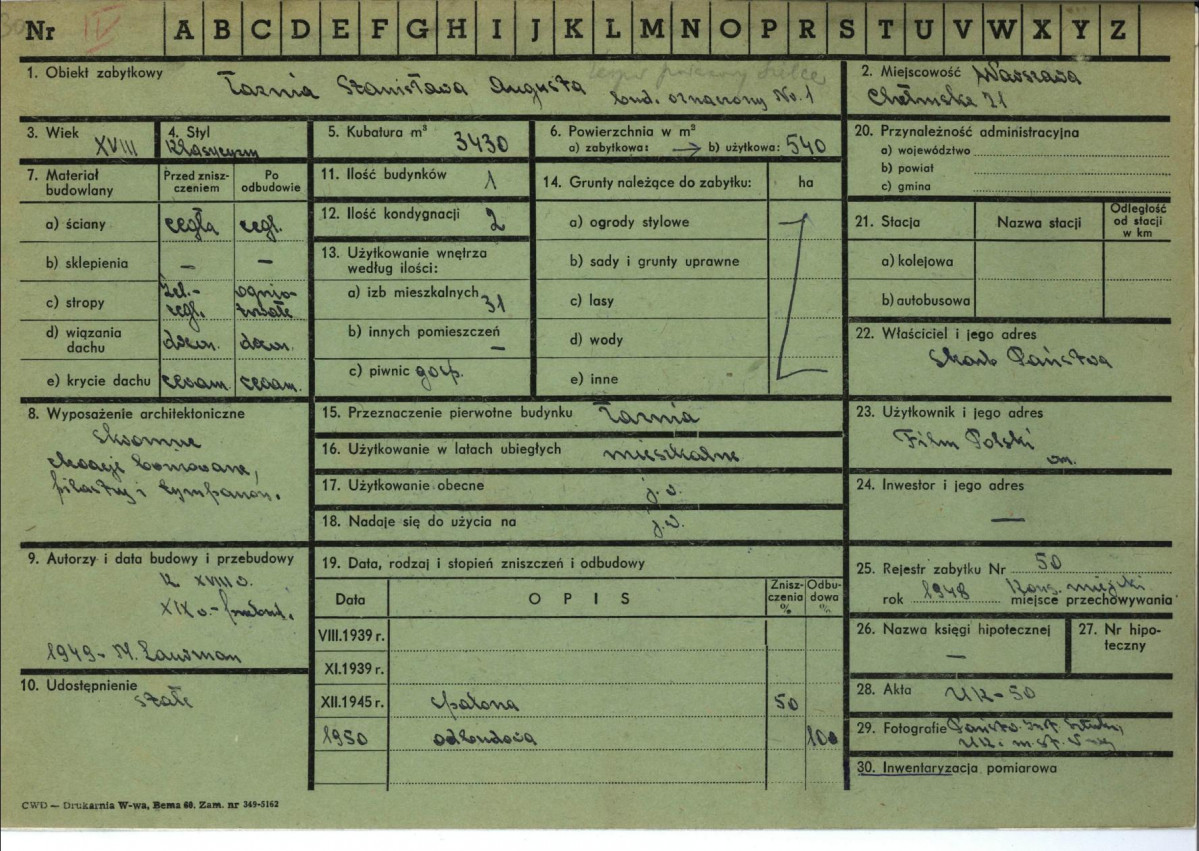 Nr IV A B C D E F G H I J K L M N O P R S T U V W X Y Z
1. Obiekt zabytkowy Łaźnia Stanisława Augusta
bud. oznaczony No. 1
2. Miejscowość Warszawa
Chełmska 21
3. Wiek XVIII
4. Styl klasycyzm
5. Kubatura m³ 3430
6. Powierzchnia w m²
a) zabytkowa: → b) użytkowa: 540
7. Materiał budowlany
Przed znisz-
czeniem
Po
odbudowie
a) ściany cegła cegł.
b) sklepienia — —
c) stropy żel.-
cegł.
ognio-
trwałe
d) wiązania
dachu drewn. drewn.
e) krycie dachu ceram. ceram.
8. Wyposażenie architektoniczne
skromne
elewacje boniowane,
pilastry i tympanon.
9. Autorzy i data budowy i przebudowy
k. XVIII w.
XIX w. - przebud.
1949 - M.
10. Udostępnienie
stałe
11. Ilość budynków 1
12. Ilość kondygnacji 2
13. Użytkowanie wnętrza
według ilości:
a) izb mieszkalnych 31
b) innych pomieszczeń —
c) piwnic gosp.
14. Grunty należące do zabytku: ha
a) ogrody stylowe
b) sady i grunty uprawne
c) lasy
d) wody
e) inne
15. Przeznaczenie pierwotne budynku Łaźnia
16. Użytkowanie w latach ubiegłych mieszkalne
17. Użytkowanie obecne j. w.
18. Nadaje się do użycia na j. w.
19. Data, rodzaj i stopień zniszczeń i odbudowy
Data O P I S Znisz-
czenia
%
Odbu-
dowa
%
VIII.1939 r.
XI.1939 r.
XII.1945 r. spalona 50
1950 odbudowa 100
20. Przynależność administracyjna
a) województwo
b) powiat
c) gmina
21. Stacja Nazwa stacji Odległość
od stacji
w km
a) kolejowa
b) autobusowa
22. Właściciel i jego adres
Skarb Państwa
23. Użytkownik i jego adres
Film Polski
24. Inwestor i jego adres
—
25. Rejestr zabytku Nr 50
rok 1948 Kons. miejski miejsce przechowywania
26. Nazwa księgi hipotecznej
—
27. Nr hipo-
teczny
28. Akta UK-50
29. Fotografie Państw. Inst. Sztuki,
UK. m. st. W-wy
30. Inwentaryzacja pomiarowa
CWD — Drukarnia W-wa, Bema 60. Zam. nr 349-5162